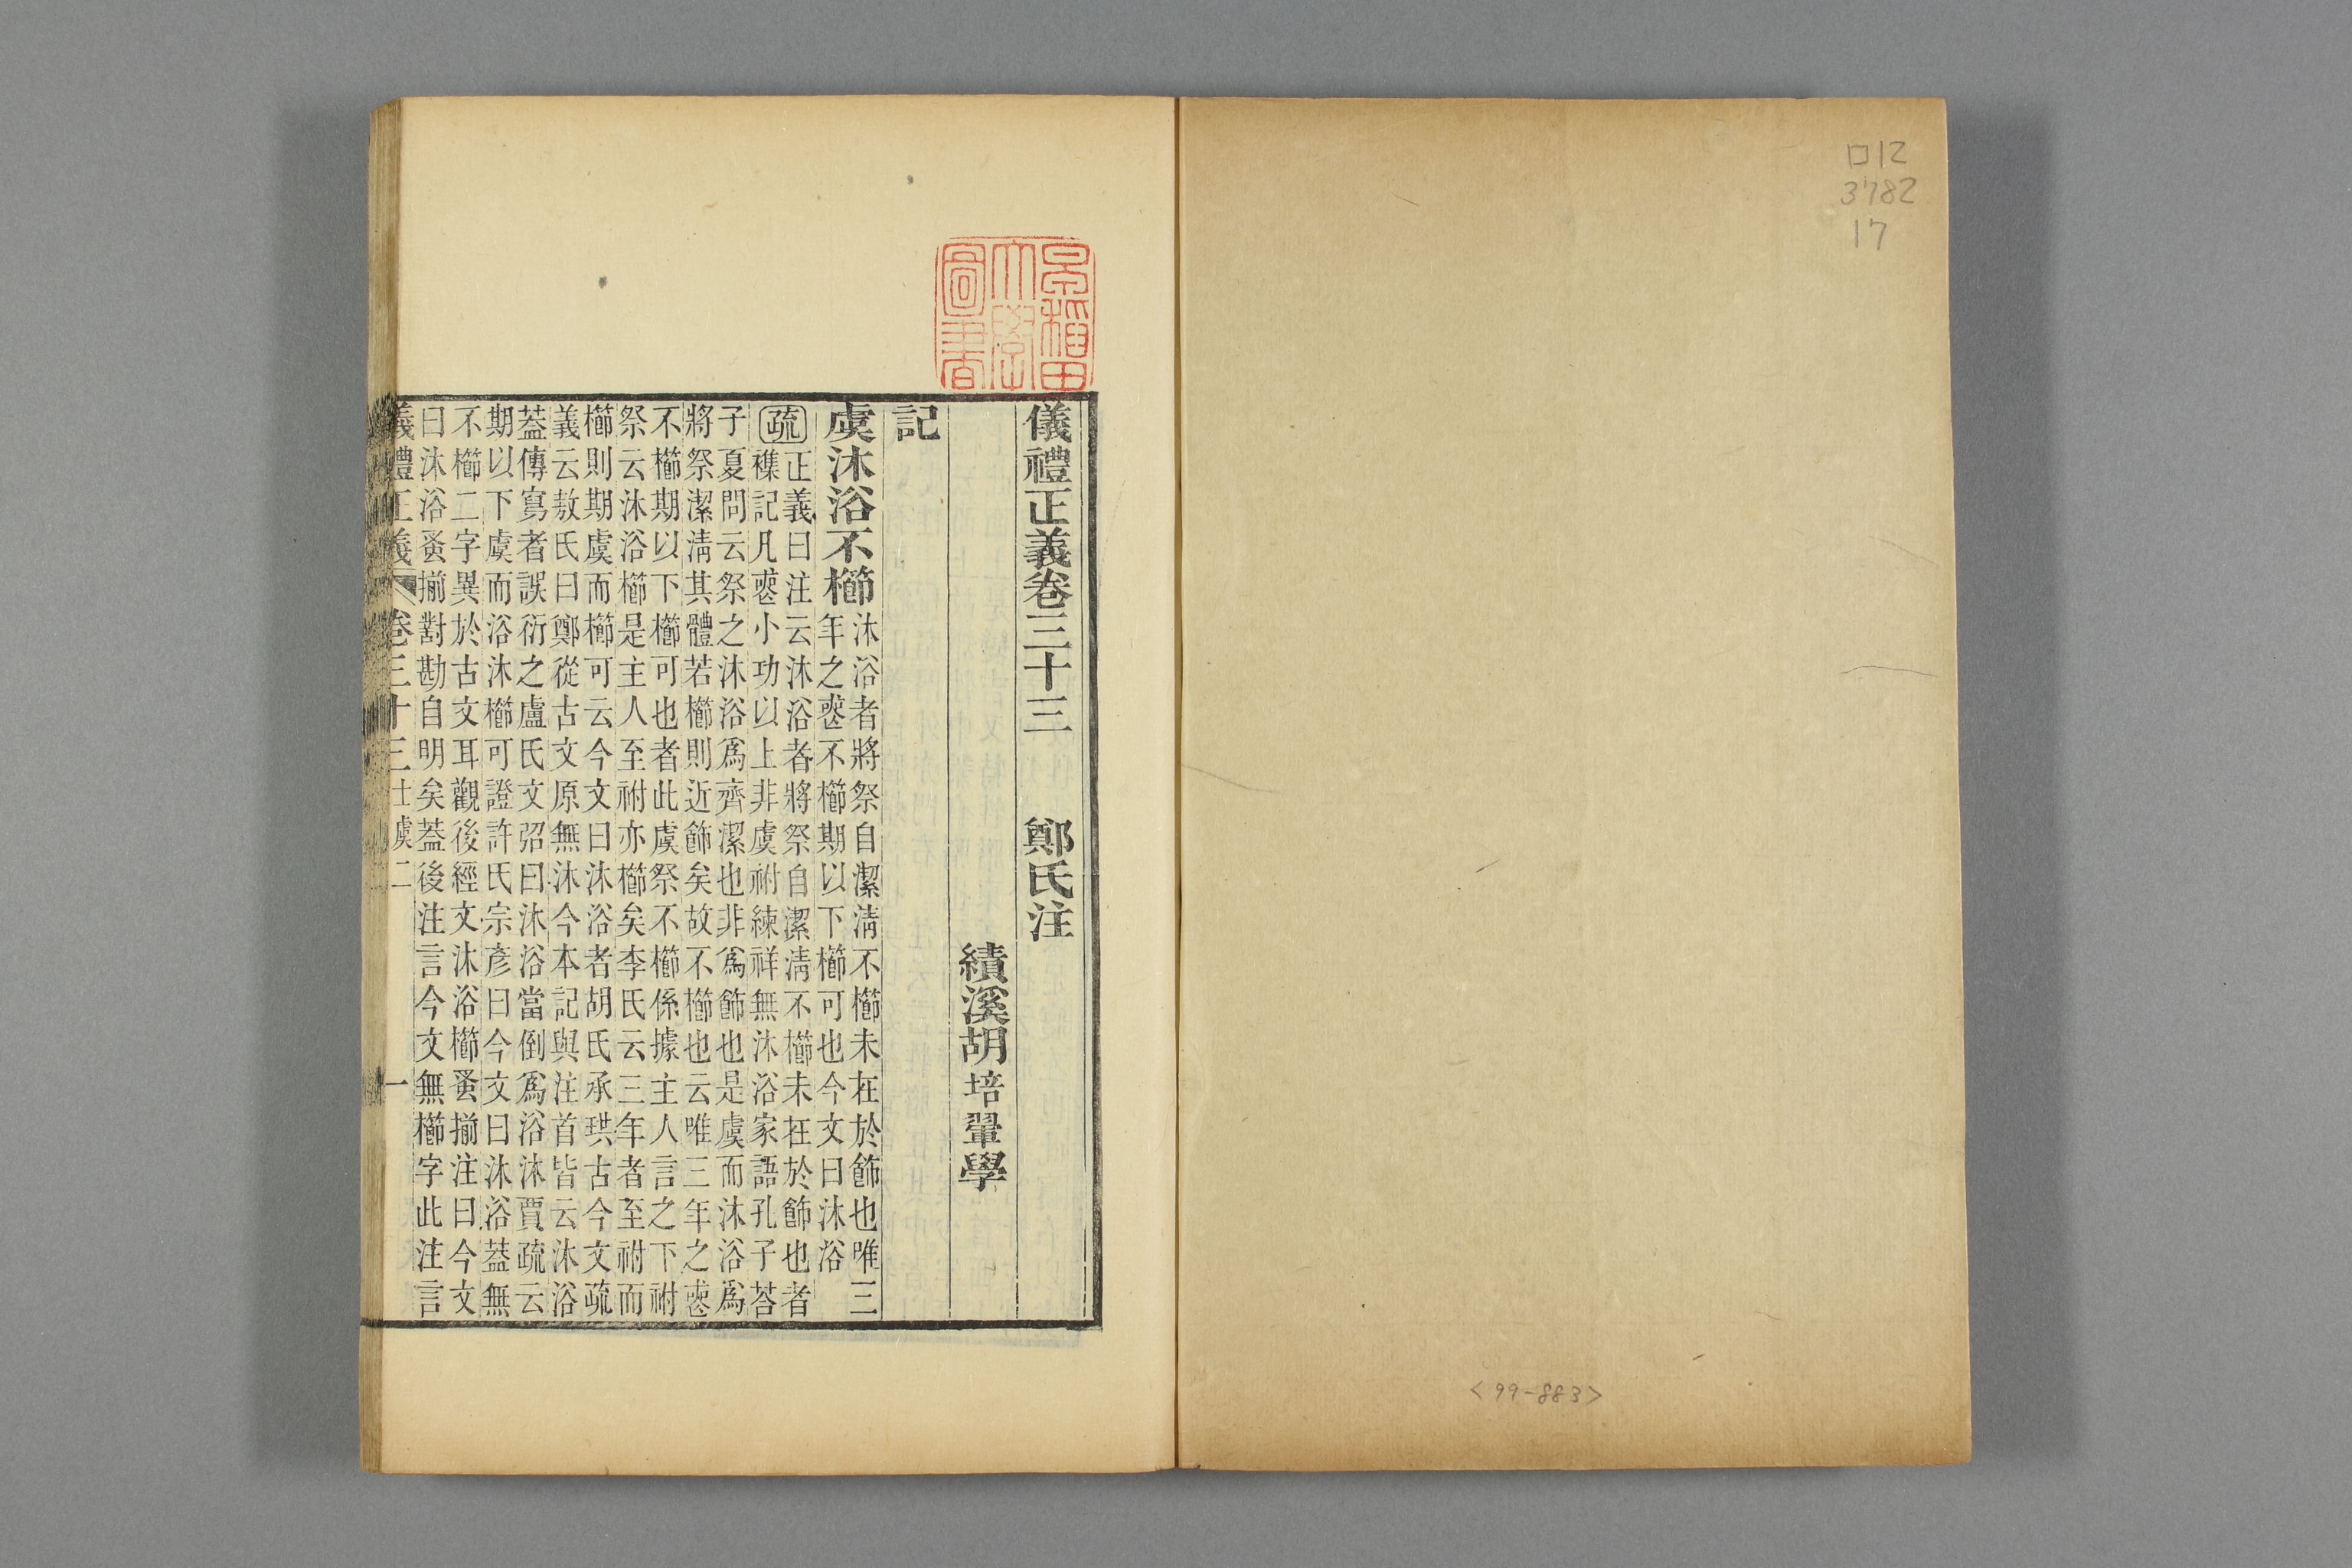 口12
3782
17
<99-883>
早稲田
大學
圖書
儀禮正義卷三十三 鄭氏注
績溪胡培翬學
記
虞沐浴不櫛
沐浴者將祭自潔淸不櫛未在於飾也唯三
年之喪不櫛期以下櫛可也今文曰沐浴
疏 正義曰注云沐浴者將祭自潔淸不櫛未在於飾也者
襍記凡喪小功以上非虞祔練祥無沐浴家語孔子荅
子夏問云祭之沐浴爲齊潔也非爲飾也是虞而沐浴爲
將祭潔淸其體若櫛則近飾矣故不櫛也云唯三年之喪
不櫛期以下櫛可也者此虞祭不櫛係據主人言之下祔
祭云沐浴櫛是主人至祔亦櫛矣李氏云三年者至祔而
櫛則期虞而櫛可云今文曰沐浴者胡氏承珙古今文疏
義云敖氏曰鄭從古文原無沐今本記與注首皆云沐浴
葢傳寫者誤衍之盧氏文弨曰沐浴當倒爲浴沐賈疏云
期以下虞而浴沐櫛可證許氏宗彥曰今文曰沐浴葢無
不櫛二字異於古文耳觀後經文沐浴櫛蚤揃注曰今文
曰沐浴蚤揃對勘自明矣葢後注言今文無櫛字此注言
義禮正義 卷三十三 士虞二 一